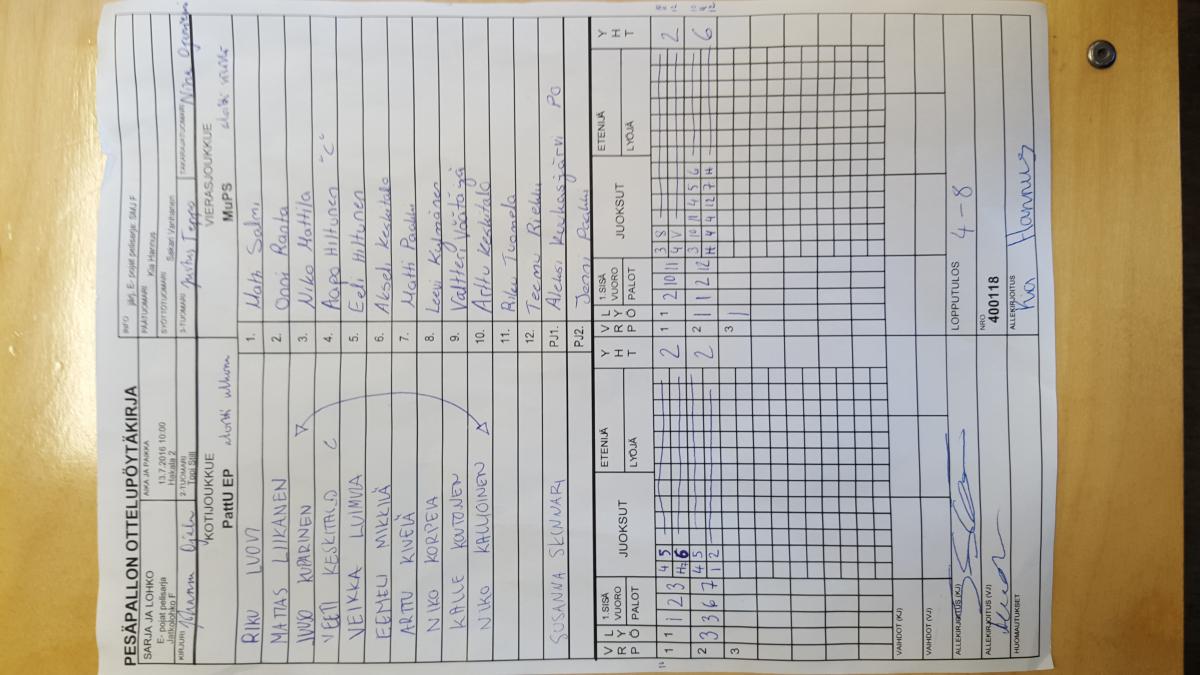 PESÄPALLON OTTELUPÖYTÄKIRJA
SARJA JA LOHKO
E- pojat pelisarja
Jatkolohko F
AIKA JA PAIKKA
13.7.2016 10:00
Hakala 2
INFO järj. E- pojat pelisarja: SMJ F
PÄÄTUOMARI Kia Hannus
SYÖTTÖTUOMARI Sakari Vanhanen
KIRJURI
2-TUOMARI
Topi Still
3-TUOMARI Justus Teppo
TAKARAJATUOMARI Nina
KOTIJOUKKUE
PattU EP
VIERASJOUKKUE
MuPS
RIKU LUOVI
1. Matti Salmi
MATIAS LIIKANEN
2. Onni Ranta
KUPARINEN
3. Niko Mattila
VEETI KESKITALO C
4. Aapo Hiltunen "C"
VEIKKA LUIMULA
5. Eeli Hiltunen
EEMELI MIKKILÄ
6. Akseli Keskitalo
ARTTU KIVELÄ
7. Matti
NIKO KORPELA
8. Leevi Kylmänen
KALLE KOTONEN
9. Valtteri Väätäjä
NIKO KALLIOINEN
10. Arttu Keskitalo
11. Riku Tuomela
12. Teemu
SUSANNA SKINNARI
PJ1. Aleksi Keukasjärvi PO
PJ2. Jenni
V R P L Y Ö 1.SISÄ VUORO PALOT JUOKSUT ETENIJÄ LYÖJÄ Y H T
V R P L Y Ö 1.SISÄ VUORO PALOT JUOKSUT ETENIJÄ LYÖJÄ Y H T
1 1 1 2 3 4 5 2
1 1 2 10 11 3 8 2
2 3 3 6 7 4 5 2
1 2
2 1 1 2 12 3 10 11 4 5 6 6
H 4 4 12 7 H
3
3 1
VAIHDOT (KJ)
VAIHDOT (VJ)
ALLEKIRJOITUS (KJ)
LOPPUTULOS 4 - 8
ALLEKIRJOITUS (VJ)
NRO
400118
HUOMAUTUKSET
ALLEKIRJOITUS
Kia Hannus